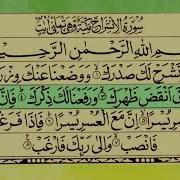 سُورَةُ الْاِنْشِرَاحِ مَكِّيَّةٌ وَّهِيَ ثَمَانِ اٰيَاتٍ
بِسْمِ اللّٰهِ الرَّحْمٰنِ الرَّحِيْمِ
نَشْرَحْ لَكَ صَدْرَكَ ۙ وَوَضَعْنَا عَنْكَ وِزْرَ
اَنْقَضَ ظَهْرَكَ ۙ وَرَفَعْنَا لَكَ ذِكْرَكَ ؕ فَاِنَّ
يُسْرًا ۙ اِنَّ مَعَ الْعُسْرِ يُسْرًا ؕ فَاِذَا فَرَغْ
فَانْصَبْ ۙ وَاِلٰى رَبِّكَ فَارْغَبْ